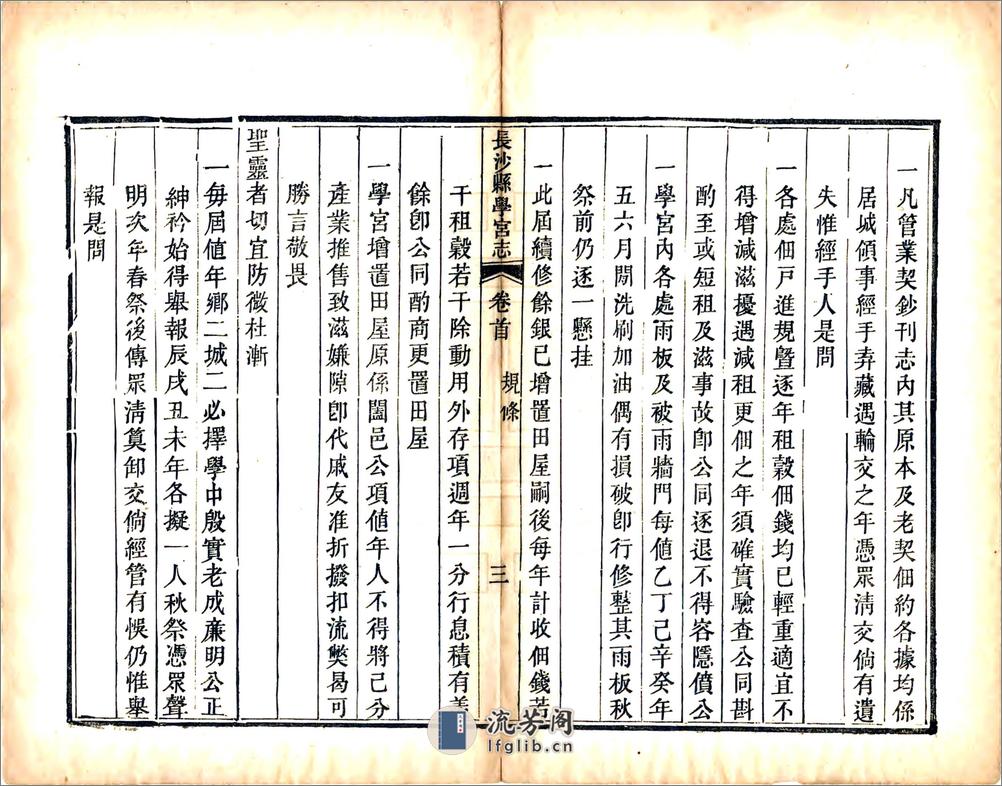 一凡管業契鈔刊志內其原本及老契佃約各據均係
居城領事經手弆藏遇輪交之年憑眾淸交倘有遺
失惟經手人是問
一各處佃戶進規曁逐年租穀佃錢均已輕重適宜不
得增減滋擾遇減租更佃之年須確實驗查公同斟
酌至或短租及滋事故卽公同逐退不得容隱僨公
一學宮內各處雨板及被雨牆門每値乙丁己辛癸年
五六月閒洗刷加油偶有損破卽行修整其雨板秋
祭前仍逐一懸挂
一此屆續修餘銀已增置田屋嗣後每年計收佃錢若
長沙縣學宮志 卷首 規條 三
干租穀若干除動用外存項週年一分行息積有羨
餘卽公同酌商更置田屋
一學宮增置田屋原係闔邑公項値年人不得將己分
產業推售致滋嫌隙卽代戚友准折撥扣流獘曷可
勝言敬畏
聖靈者切宜防微杜漸
一每屆值年鄉二城二必擇學中殷實老成廉明公正
紳衿始得舉報辰戌丑未年各擬一人秋祭憑眾聲
明次年春祭後傳眾淸算卸交倘經管有悞仍惟舉
報是問
流芳阁
lfglib.cn